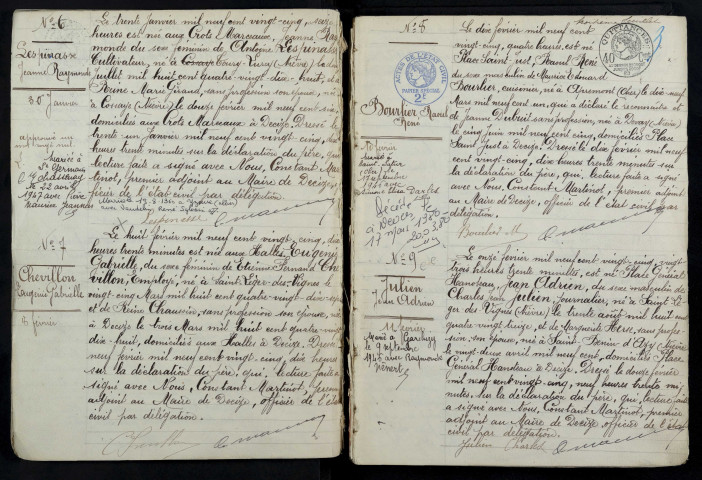 N° 6
Lespinasse
Jeanne Raymonde
30 Janvier
mariée à
St Germain
Chassenay
le 22 avril
1947 avec
Maurice Jeannet
Le trente Janvier mil neuf cent vingt-cinq,
heures est née aux Crots Marceaux, Jeanne Ray
monde du sexe féminin de Antoine Lespinasse
Cultivateur, né à Cossaye Cours-Luzay (Nièvre) le dix
Juillet mil huit cent quatre-vingt dix huit, et
Jeune Marie Girand, sans profession son épouse, née
à Cossaye (Nièvre) le douze février mil neuf cent six
domiciliés aux Crots Marceaux à Decize. Dressé le
trente un Janvier mil neuf cent vingt-cinq,
heures trente minutes sur la déclaration du père, qui
lecture faite a signé avec Nous, Constant Mar
tinot, premier adjoint au Maire de Decize,
officier de l'état-civil par délégation.
N° 7
Chevillon
Eugénie Gabrielle
8 février
Le huit février mil neuf cent vingt-cinq, dix
heures trente minutes est née aux Halles, Eugénie
Gabrielle, du sexe féminin de Etienne Fernand Che
villon, Employé, né à Saint-Léger-des-Vignes le
vingt-cinq Mars mil huit cent quatre-vingt dix-sept
et de Reine Chaussin, sans profession son épouse, née
à Decize le trois Mars mil huit cent quatre-vingt
dix-huit, domiciliés aux Halles à Decize. Dressé
neuf février mil neuf cent vingt-cinq, dix heures
sur la déclaration du père, qui, lecture faite a
signé avec Nous, Constant Martinot, premier
adjoint au Maire de Decize, officier de l'état
civil par délégation.
N° 8
Bourlier Raoul
René
10 février
Décédé
à Devay
17 mai 1980
Le dix février mil neuf cent
vingt-cinq, quatre heures, est né
Place Saint-Just, Raoul René
du sexe masculin de Maurice Edouard
Bourlier, cuisinier, né à Apremont (Cher) le dix
Mars mil neuf cent un, qui a déclaré le reconnaître et
de Jeanne Dubreuil sans profession, née à Devay (Nièvre)
le cinq Juin mil neuf cent cinq, domiciliés Place
Saint Just à Decize. Dressé le dix février mil neuf
cent vingt-cinq, dix heures trente minutes sur
la déclaration du père, qui, lecture faite a signé
avec Nous, Constant Martinot, premier adjoint
au Maire de Decize, officier de l'état civil par
délégation.
ACTES DE L'ÉTAT CIVIL
PAPIER SPÉCIAL
QUITTANCES
N° 9
Julien
Jean Adrien
11 février
Marié à Garchizy
le 9 septembre
1948 avec Raymonde
Le onze février mil neuf cent vingt-cinq, vingt-
trois heures trente minutes, est né Place Général
Hanoteau, Jean Adrien, du sexe masculin de
Charles Julien, Journalier, né à Saint Lé
ger des Vignes (Nièvre) le trente août mil huit cent
quatre-vingt treize, et de Marguerite Herse, sans profes
sion, son épouse, née à Saint-Benin d'Azy (Nièvre)
le vingt-deux avril mil neuf cent, domiciliés Place
Général Hanoteau à Decize. Dressé le douze février
mil neuf cent vingt-cinq, neuf heures trente mi
nutes, sur la déclaration du père, qui, lecture faite
a signé avec Nous, Constant Martinot, premier
adjoint au Maire de Decize officier de l'état
civil par délégation.
Julien Charles